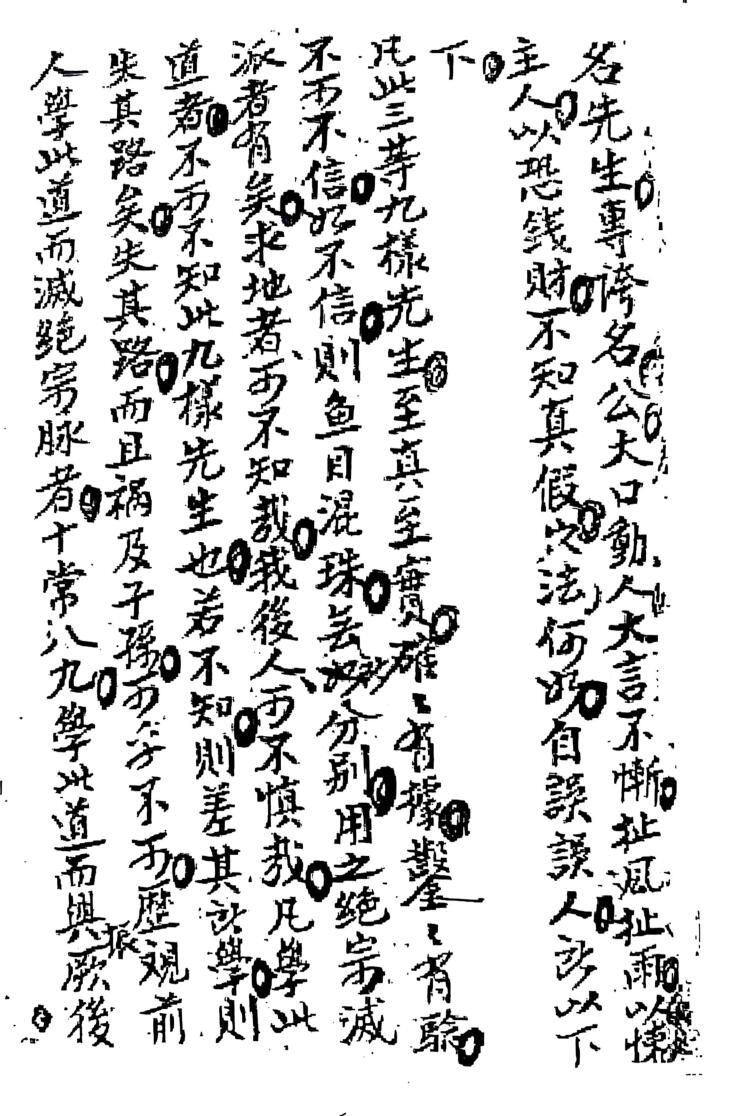 名先生專誇名公大口動人大言不慚扯風扯雨以悚
主人以恐錢財不知真假穴法何如自誤誤人所以下
下
凡此三等九樣先生至真至實確〻有據鑿〻有驗
不可不信如不信則魚目混珠若如分別用之絕宗滅
派者有矣求地者可不知哉我後人可不慎哉凡學此
道者不可不知此九樣先生也若不知則差其所學則
失其路矣失其路而且禍及子孫可乎不可歷觀前
人學此道而滅絕宗脉者十常八九學此道而興振厥後